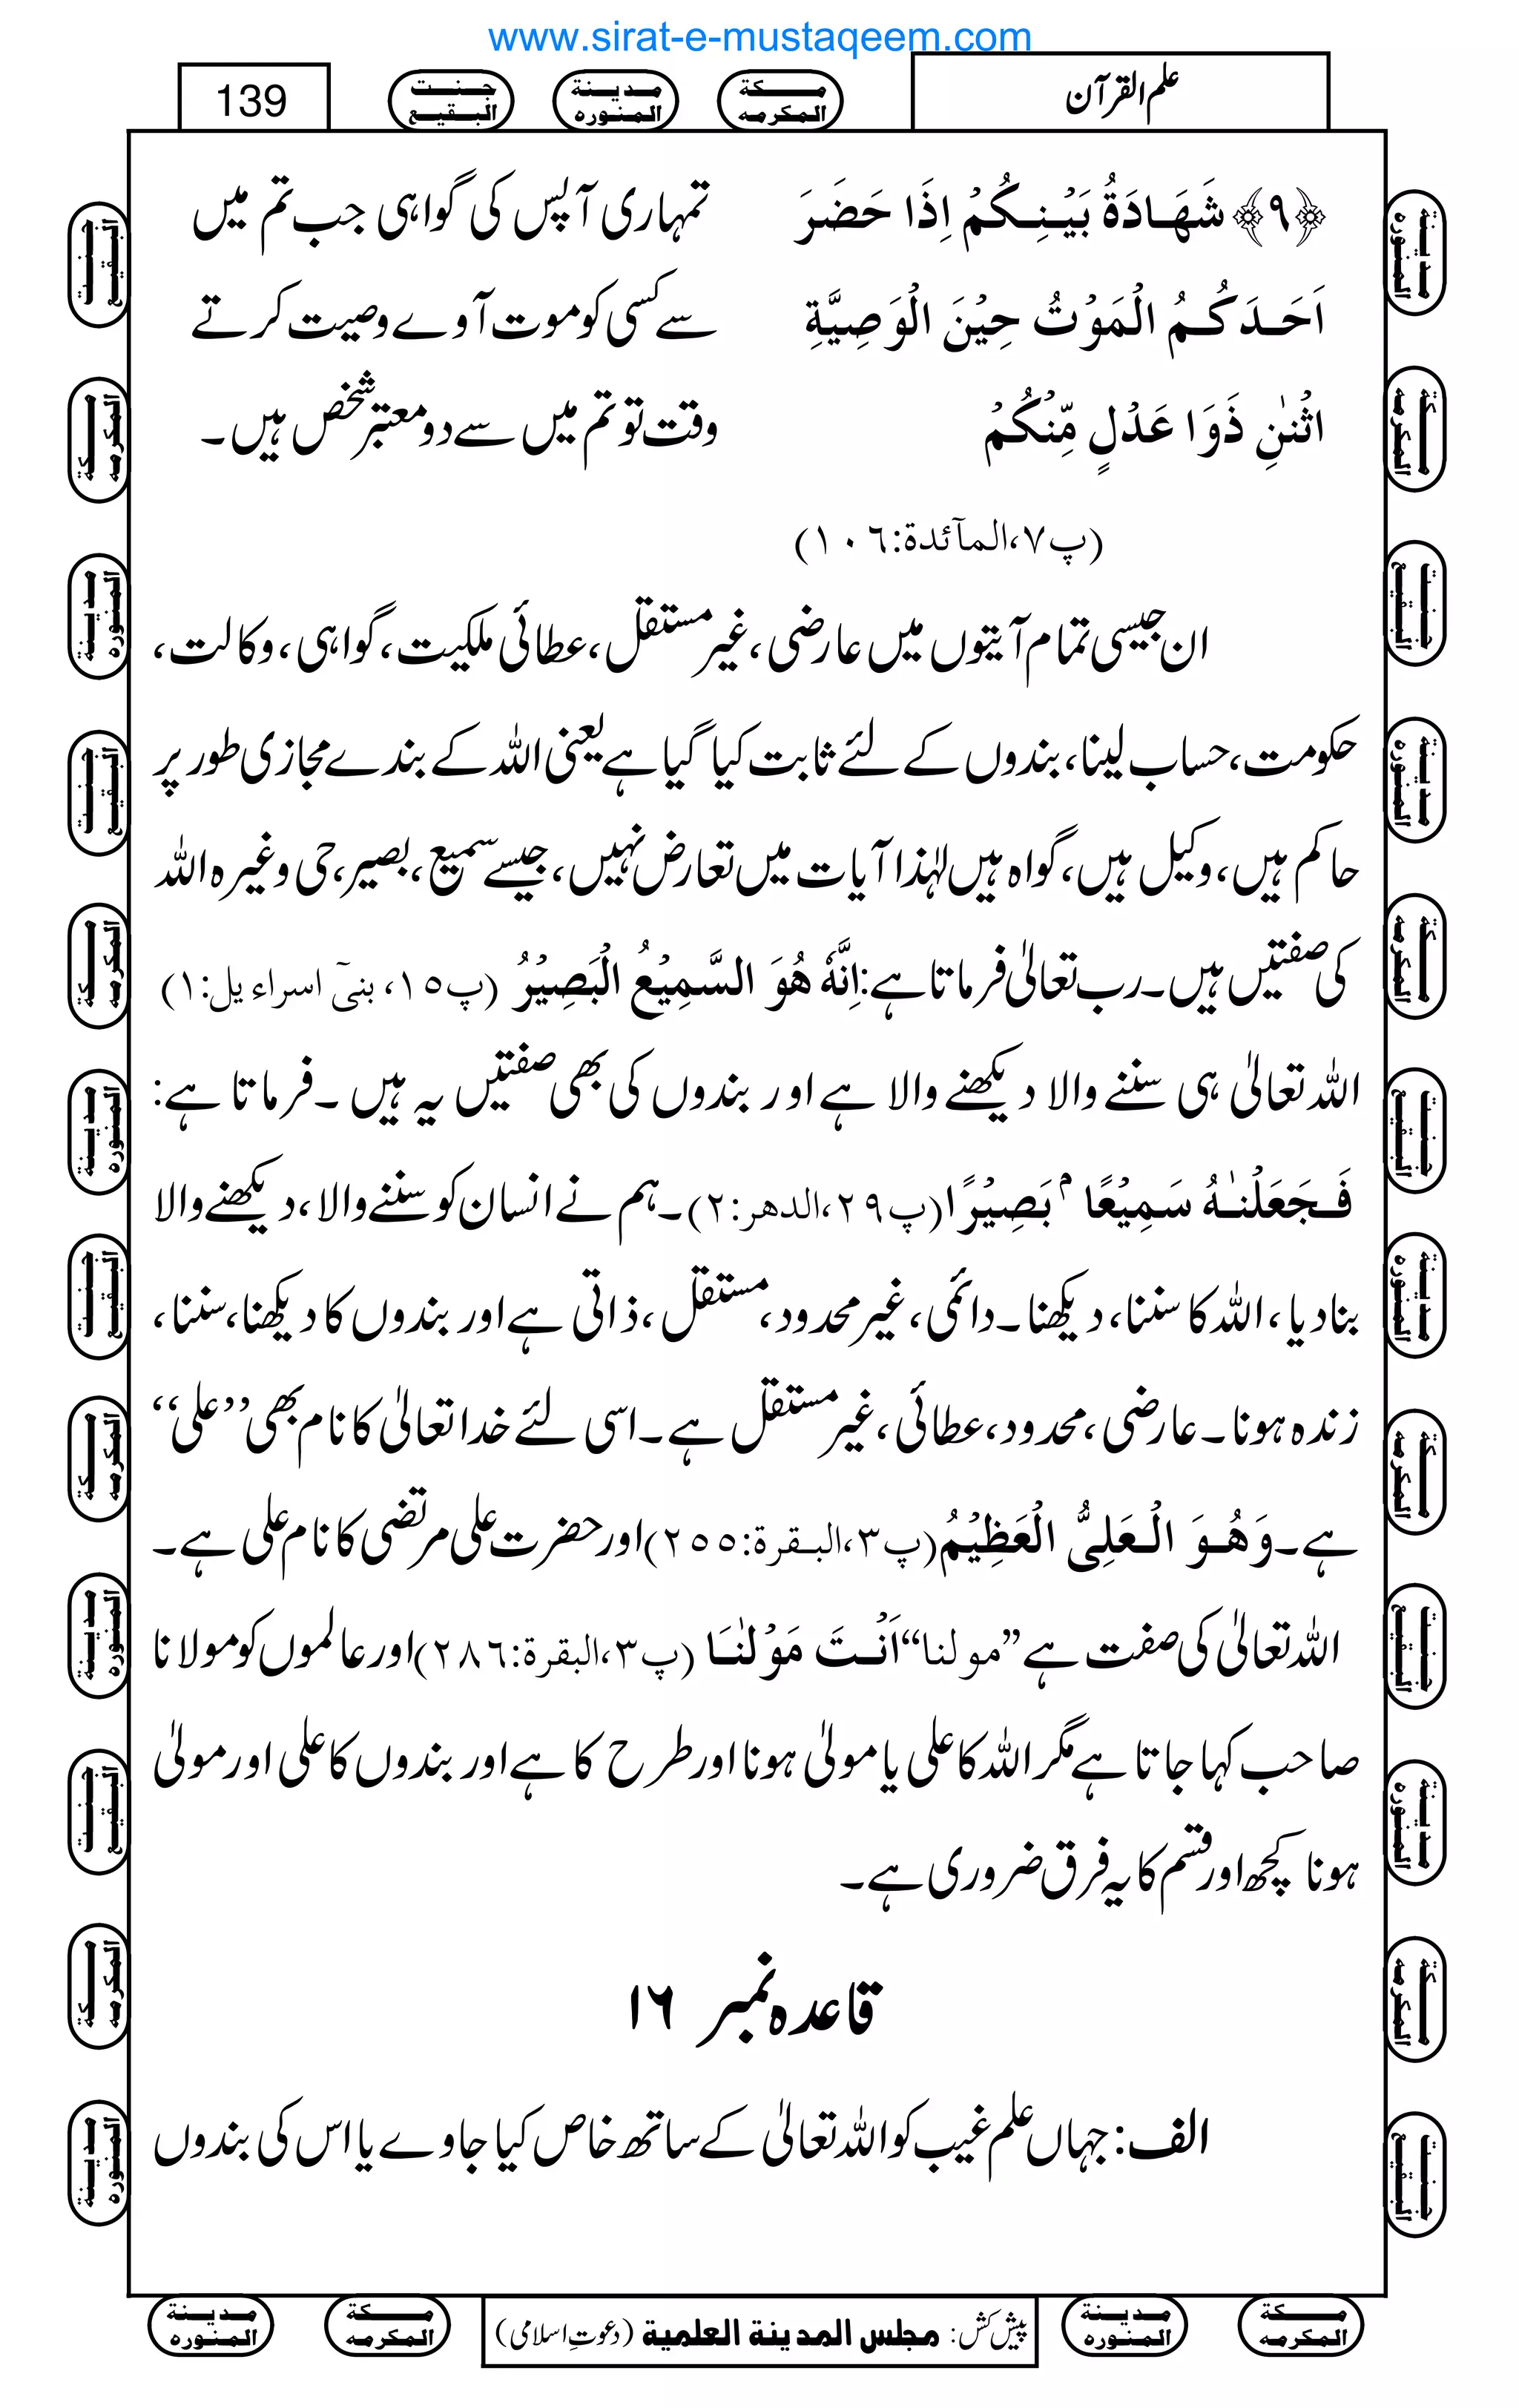 www.sirat-e-mustaqeem.com
علم القرآن
مكة المكرمه
مدينة المنوره
جنت البقيع
139
﴿۹﴾ شَهَادَةُ بَيْنِكُمْ اِذَا حَضَرَ تمہاری آپس کی گواہی جب تم میں
اَحَدَكُمُ الْمَوْتُ حِيْنَ الْوَصِيَّةِ سے کسی کو موت آوے وصیت کرتے
اثْنٰنِ ذَوَا عَدْلٍ مِّنْكُمْ وقت تو تم میں سے دو معتبر شخص ہیں۔
(پ۷،المآئدة:۱۰٦)
ان جیسی تمام آیتوں میں عارضی، غیر مستقل، عطائی ملکیت، گواہی، وکالت،
حکومت، حساب لینا، بندوں کے لئے ثابت کیا گیا ہے یعنی اللہ کے بندے مجازی طور پر
حاکم ہیں، وکیل ہیں، گواہ ہیں لہٰذا آیات میں تعارض نہیں، جیسے سمیع، بصیر، حی وغیرہ اللہ
کی صفتیں ہیں۔ رب تعالیٰ فرماتا ہے: اِنَّهٗ هُوَ السَّمِيْعُ الْبَصِيْرُ (پ۱۵، بنیٓ اسراءیل:۱)
اللہ تعالیٰ ہی سننے والا دیکھنے والا ہے اور بندوں کی بھی صفتیں یہ ہیں۔ فرماتا ہے:
فَجَعَلْنٰهُ سَمِيْعًاۢ بَصِيْرًا (پ۲۹،الدهر:۲)۔ ہم نے انسان کو سننے والا، دیکھنے والا
بنادیا، اللہ کا سننا، دیکھنا۔ دائمی، غیر محدود، مستقل، ذاتی ہے اور بندوں کا دیکھنا، سننا،
زندہ ہونا۔ عارضی، محدود، عطائی، غیر مستقل ہے۔ اسی لئے خدا تعالیٰ کا نام بھی ’’علی‘‘
ہے۔ وَهُوَ الْعَلِىُّ الْعَظِيْمُ (پ۳،البقرة:۲۵۵) اور حضرت علی مرتضی کا نام علی ہے۔
اللہ تعالیٰ کی صفت ہے ’’مولنا‘‘ اَنْتَ مَوْلٰنَا (پ۳،البقرة:۲۸٦) اور عالموں کو مولانا
صاحب کہا جاتا ہے مگر اللہ کا علی یا مولیٰ ہونا اور طرح کا ہے اور بندوں کا علی اور مولیٰ
ہونا کچھ اور قسم کا یہ فرق ضروری ہے۔
قاعدہ نمبر ۱۶
الف: جہاں علم غیب کو اللہ تعالیٰ کے ساتھ خاص کیا جاوے یا اس کی بندوں
مكة المكرمه
مدينة المنوره
پیش کش: مجلس المدينة العلمية (دعوتِ اسلامی)
مكة المكرمه
مدينة المنوره